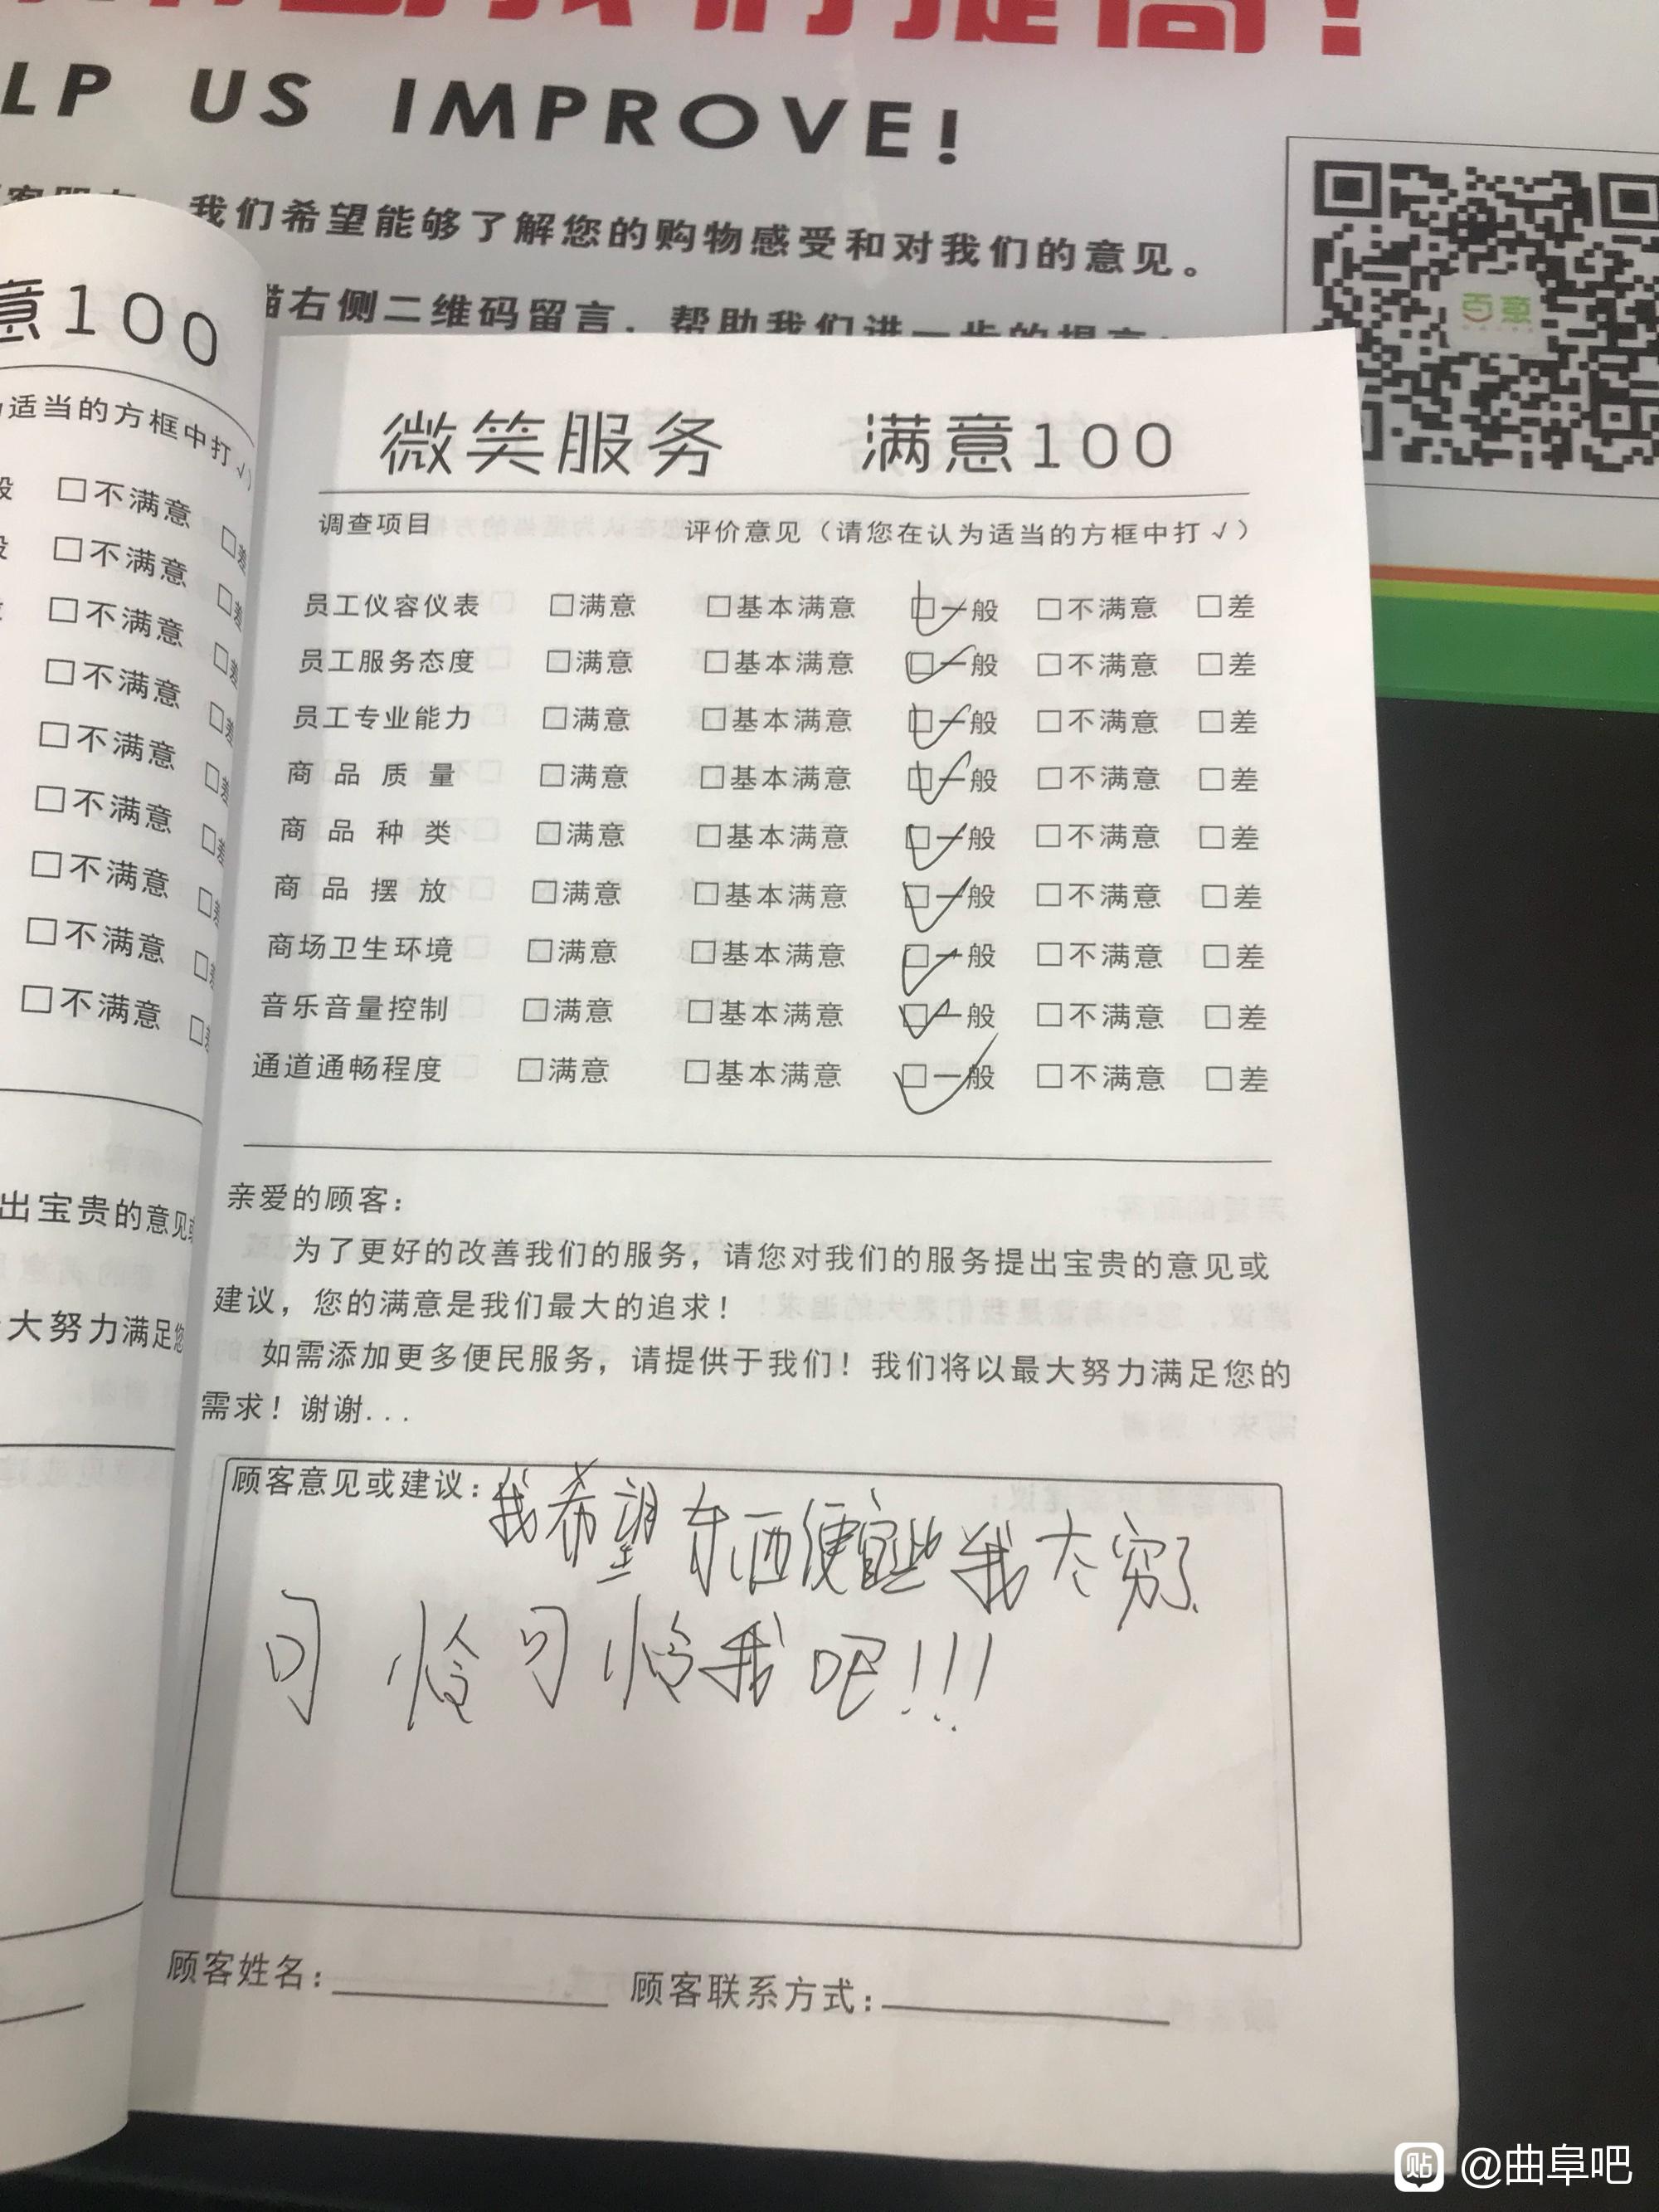 LP US IMPROVE!
我们希望能够了解您的购物感受和对我们的意见。
描右侧二维码留言，帮助我们进一步的提高！
百意
意100
适当的方框中打√）
般 □不满意 □差
般 □不满意 □差
□不满意 □差
□不满意 □差
□不满意 □差
□不满意 □差
□不满意 □差
□不满意 □差
□不满意 □差
出宝贵的意见或
大努力满足您
微笑服务 满意100
调查项目 评价意见（请您在认为适当的方框中打√）
员工仪容仪表 □满意 □基本满意 ☑一般 □不满意 □差
员工服务态度 □满意 □基本满意 ☑一般 □不满意 □差
员工专业能力 □满意 □基本满意 ☑一般 □不满意 □差
商品质量 □满意 □基本满意 ☑一般 □不满意 □差
商品种类 □满意 □基本满意 ☑一般 □不满意 □差
商品摆放 □满意 □基本满意 ☑一般 □不满意 □差
商场卫生环境 □满意 □基本满意 ☑一般 □不满意 □差
音乐音量控制 □满意 □基本满意 ☑一般 □不满意 □差
通道通畅程度 □满意 □基本满意 ☑一般 □不满意 □差
亲爱的顾客：
为了更好的改善我们的服务，请您对我们的服务提出宝贵的意见或
建议，您的满意是我们最大的追求！
如需添加更多便民服务，请提供于我们！我们将以最大努力满足您的
需求！谢谢...
顾客意见或建议：我希望东西便宜些我太穷了
可怜可怜我吧!!!
顾客姓名： 顾客联系方式：
贴 @曲阜吧